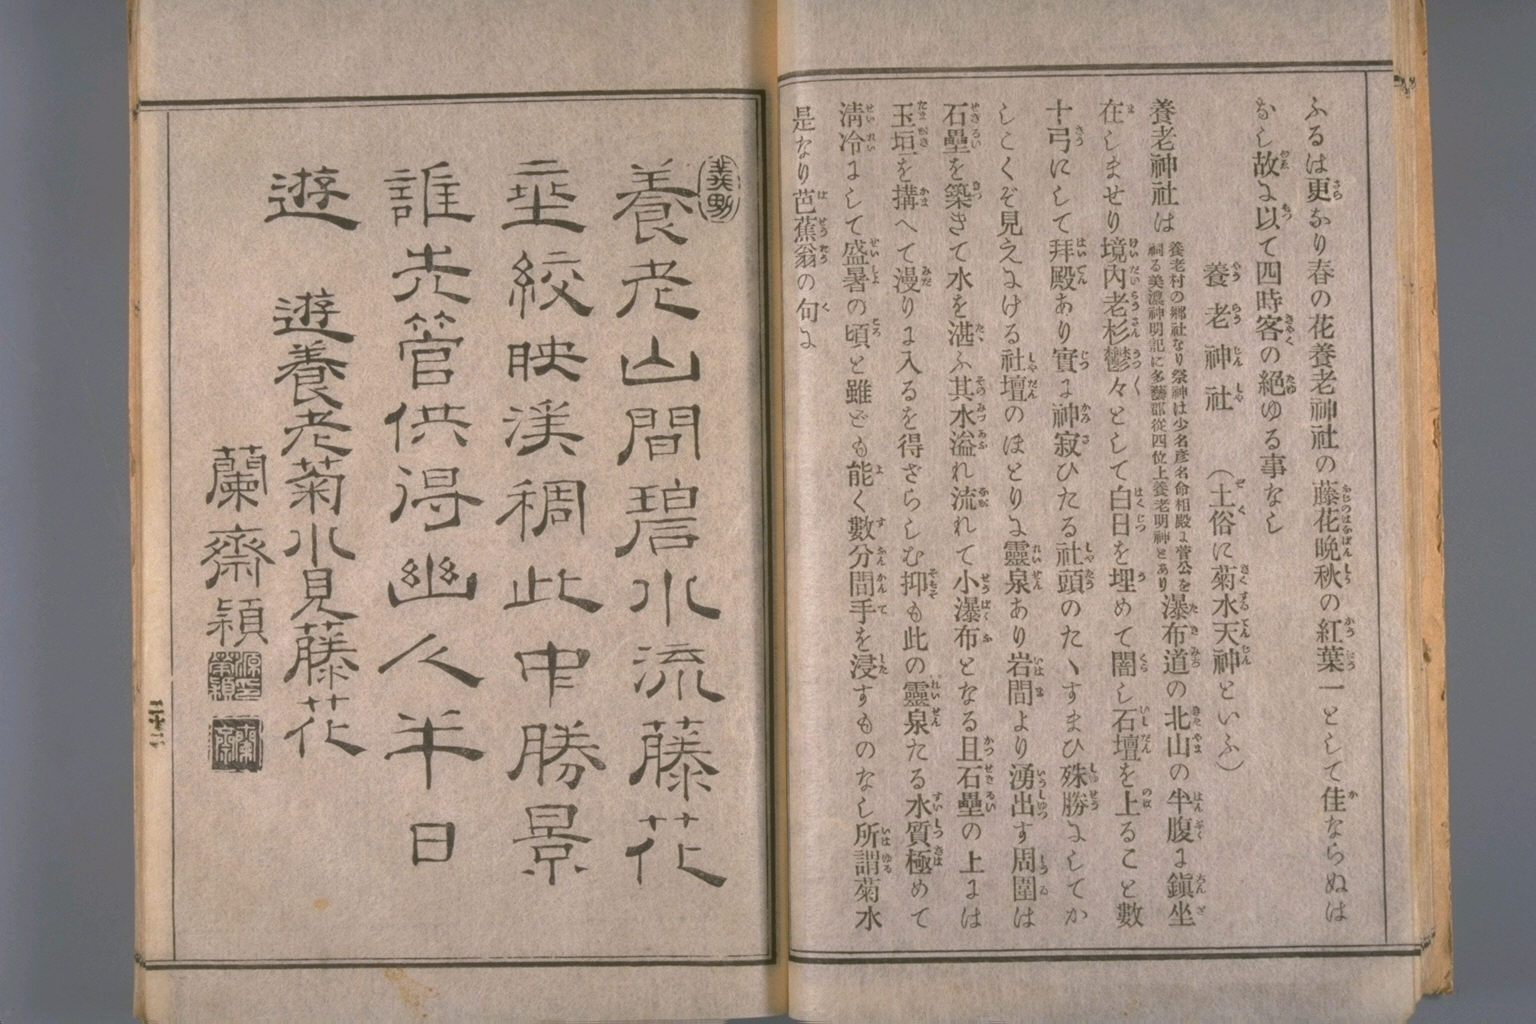 ふるは更なり春の花養老神社の藤花晩秋の紅葉一として佳ならぬは
なし故に以て四時客の絶ゆる事なし
養老神社 (土俗に菊水天神といふ)
養老神社は 養老村の郷社なり祭神は少名彦名命相殿に菅公を
祠る美濃神明記に多藝郡從四位上養老明神とあり 瀑布道の北山の半腹に鎭坐
在しませり境內老杉鬱々として白日を埋めて闇し石壇を上ること數
十弓にして拜殿あり實に神寂ひたる社頭のたゝすまひ殊勝にしてか
しこくぞ見えにける社壇のほとりに靈泉あり岩間より湧出す周圍は
石壘を築きて水を湛ふ其水溢れ流れて小瀑布となる且石壘の上には
玉垣を搆へて漫りに入るを得ざらしむ抑も此の靈泉たる水質極めて
淸冷にして盛暑の頃と雖ども能く數分間手を浸すものなし所謂菊水
是なり芭蕉翁の句に
養老山間碧水流藤花
垂絞映渓稠此中勝景
誰先管供得幽人半日
遊 遊養老菊水見藤花
蘭齋穎